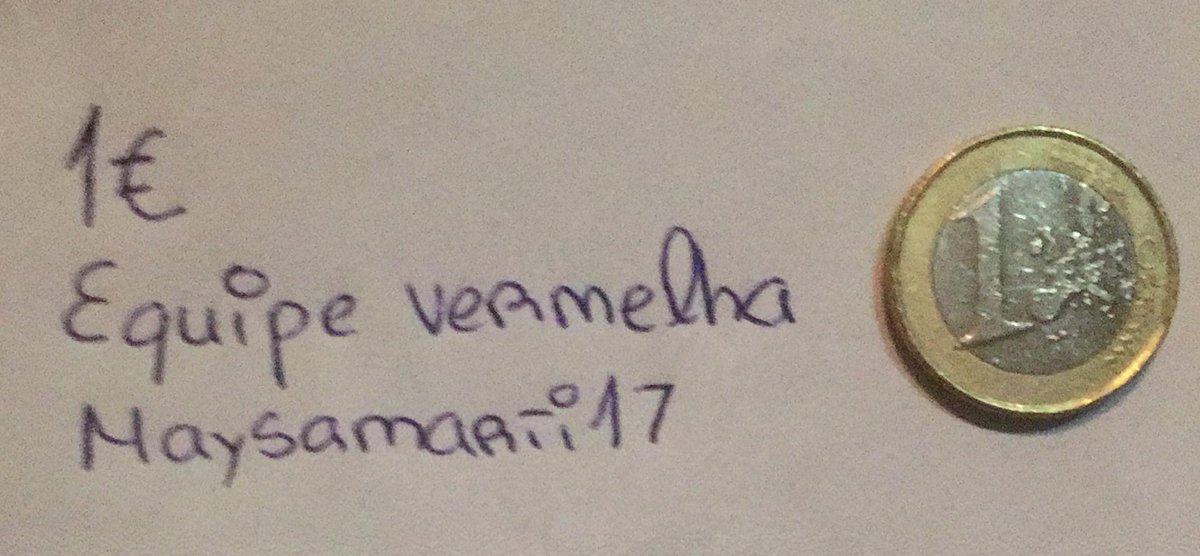 1€
Equipe vermelha
Maysamarti17
1